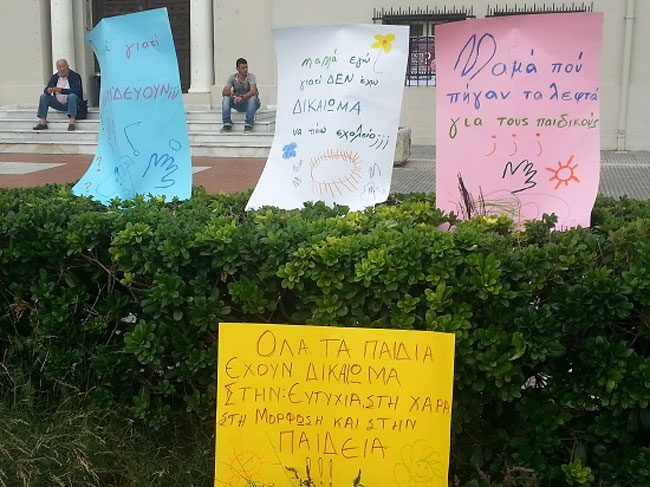 γιατί
ΙΔΕΥΟΥΝ;;;
μαμά εγώ
γιατί ΔΕΝ έχω
ΔΙΚΑΙΩΜΑ
να πάω σχολείο;;;
Μαμά πού
πήγαν τα λεφτά
για τους παιδικούς
; ; ;
ΟΛΑ ΤΑ ΠΑΙΔΙΑ
ΕΧΟΥΝ ΔΙΚΑΙΩΜΑ
ΣΤΗΝ: ΕΥΤΥΧΙΑ, ΣΤΗ ΧΑΡΑ
ΣΤΗ ΜΟΡΦΩΣΗ ΚΑΙ ΣΤΗΝ
ΠΑΙΔΕΙΑ
!!!